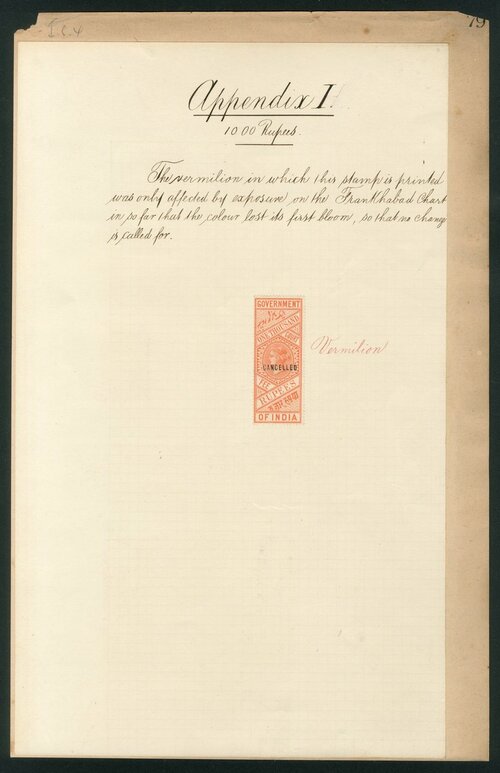 79
I. C. 4
Appendix I.
1000 Rupees.
The vermilion in which this stamp is printed
was only affected by exposure on the Frankhabad Chart
in so far that the colour lost its first bloom, so that no change
is called for.
GOVERNMENT
ONE THOUSAND
CANCELLED
RUPEES
OF INDIA
Vermilion